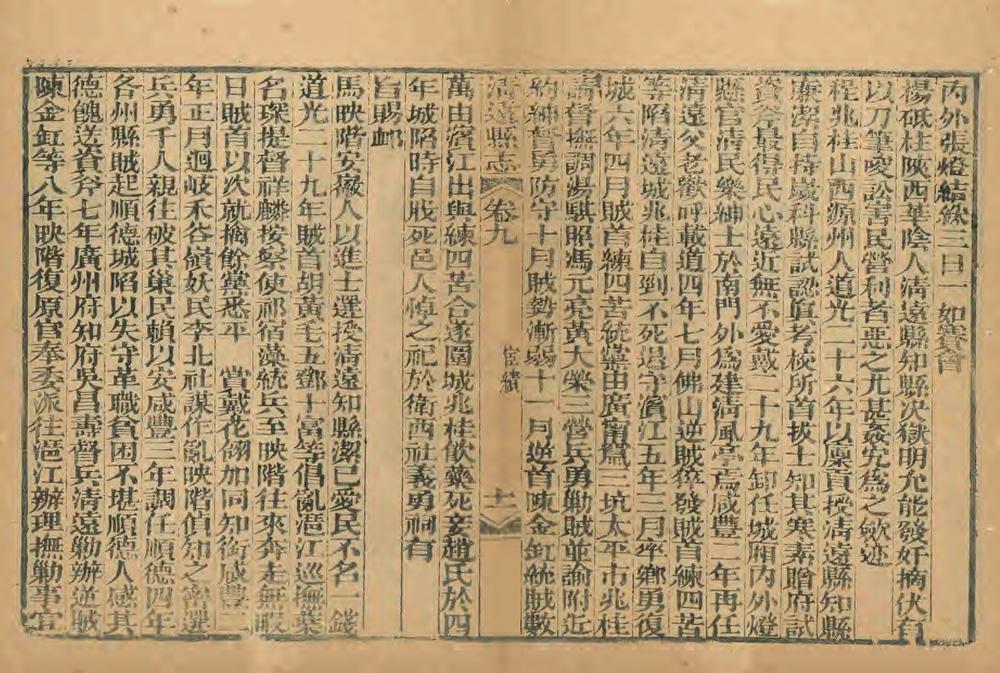 內外張燈結綵三日一如賽會
楊砥柱陝西華陰人清遠縣知縣決獄明允能發奸摘伏有
以刀筆唆訟害民營利者惡之尤甚姦宄為之歛迹
程兆桂山西源州人道光二十六年以廩貢授清遠縣知縣
廉潔自持歲科縣試認真考校所首拔士知其寒素贈府試
資斧最得民心遠近無不愛戴二十九年卸任城廂內外燈
綵官清民樂紳士於南門外為建清風亭焉咸豐二年再任
清遠父老歡呼載道四年七月佛山逆賊猝發賊首練四苦
等陷清遠城兆桂自刎不死退守濱江五年三月率鄉勇復
城六年四月賊首練四苦統黨由廣寧竄三坑太平市兆桂
請督撫調湯騏照馮元亮黃大榮三營兵勇勦賊並諭附近
約紳督勇防守十月賊勢漸弱十一月逆首陳金缸統賊數
清遠縣志 卷九 宦績 十一
萬由濱江出與練四苦合遂圍城兆桂飲藥死妾趙氏於四
年城陷時自戕死邑人悼之祀於衛西社義勇祠有
旨賜卹
馬映階安徽人以進士選授清遠知縣潔己愛民不名一錢
道光二十九年賊首胡黃毛五鄧十富等倡亂潖江巡撫葉
名琛提督祥麟按察使祁宿藻統兵至映階往來奔走無暇
日賊首以次就擒餘黨悉平 賞戴花翎加同知銜咸豐二
年正月迴岐禾谷嶺妖民李北社謀作亂映階偵知之密選
兵勇千人親往破其巢民賴以安咸豐三年調任順德四年
各州縣賊起順德城陷以失守革職貧困不堪順德人感其
德餽送資斧七年廣州府知府吳昌壽督兵清遠勦辦逆賊
陳金缸等八年映階復原官奉委派往潖江辦理撫勦事宜